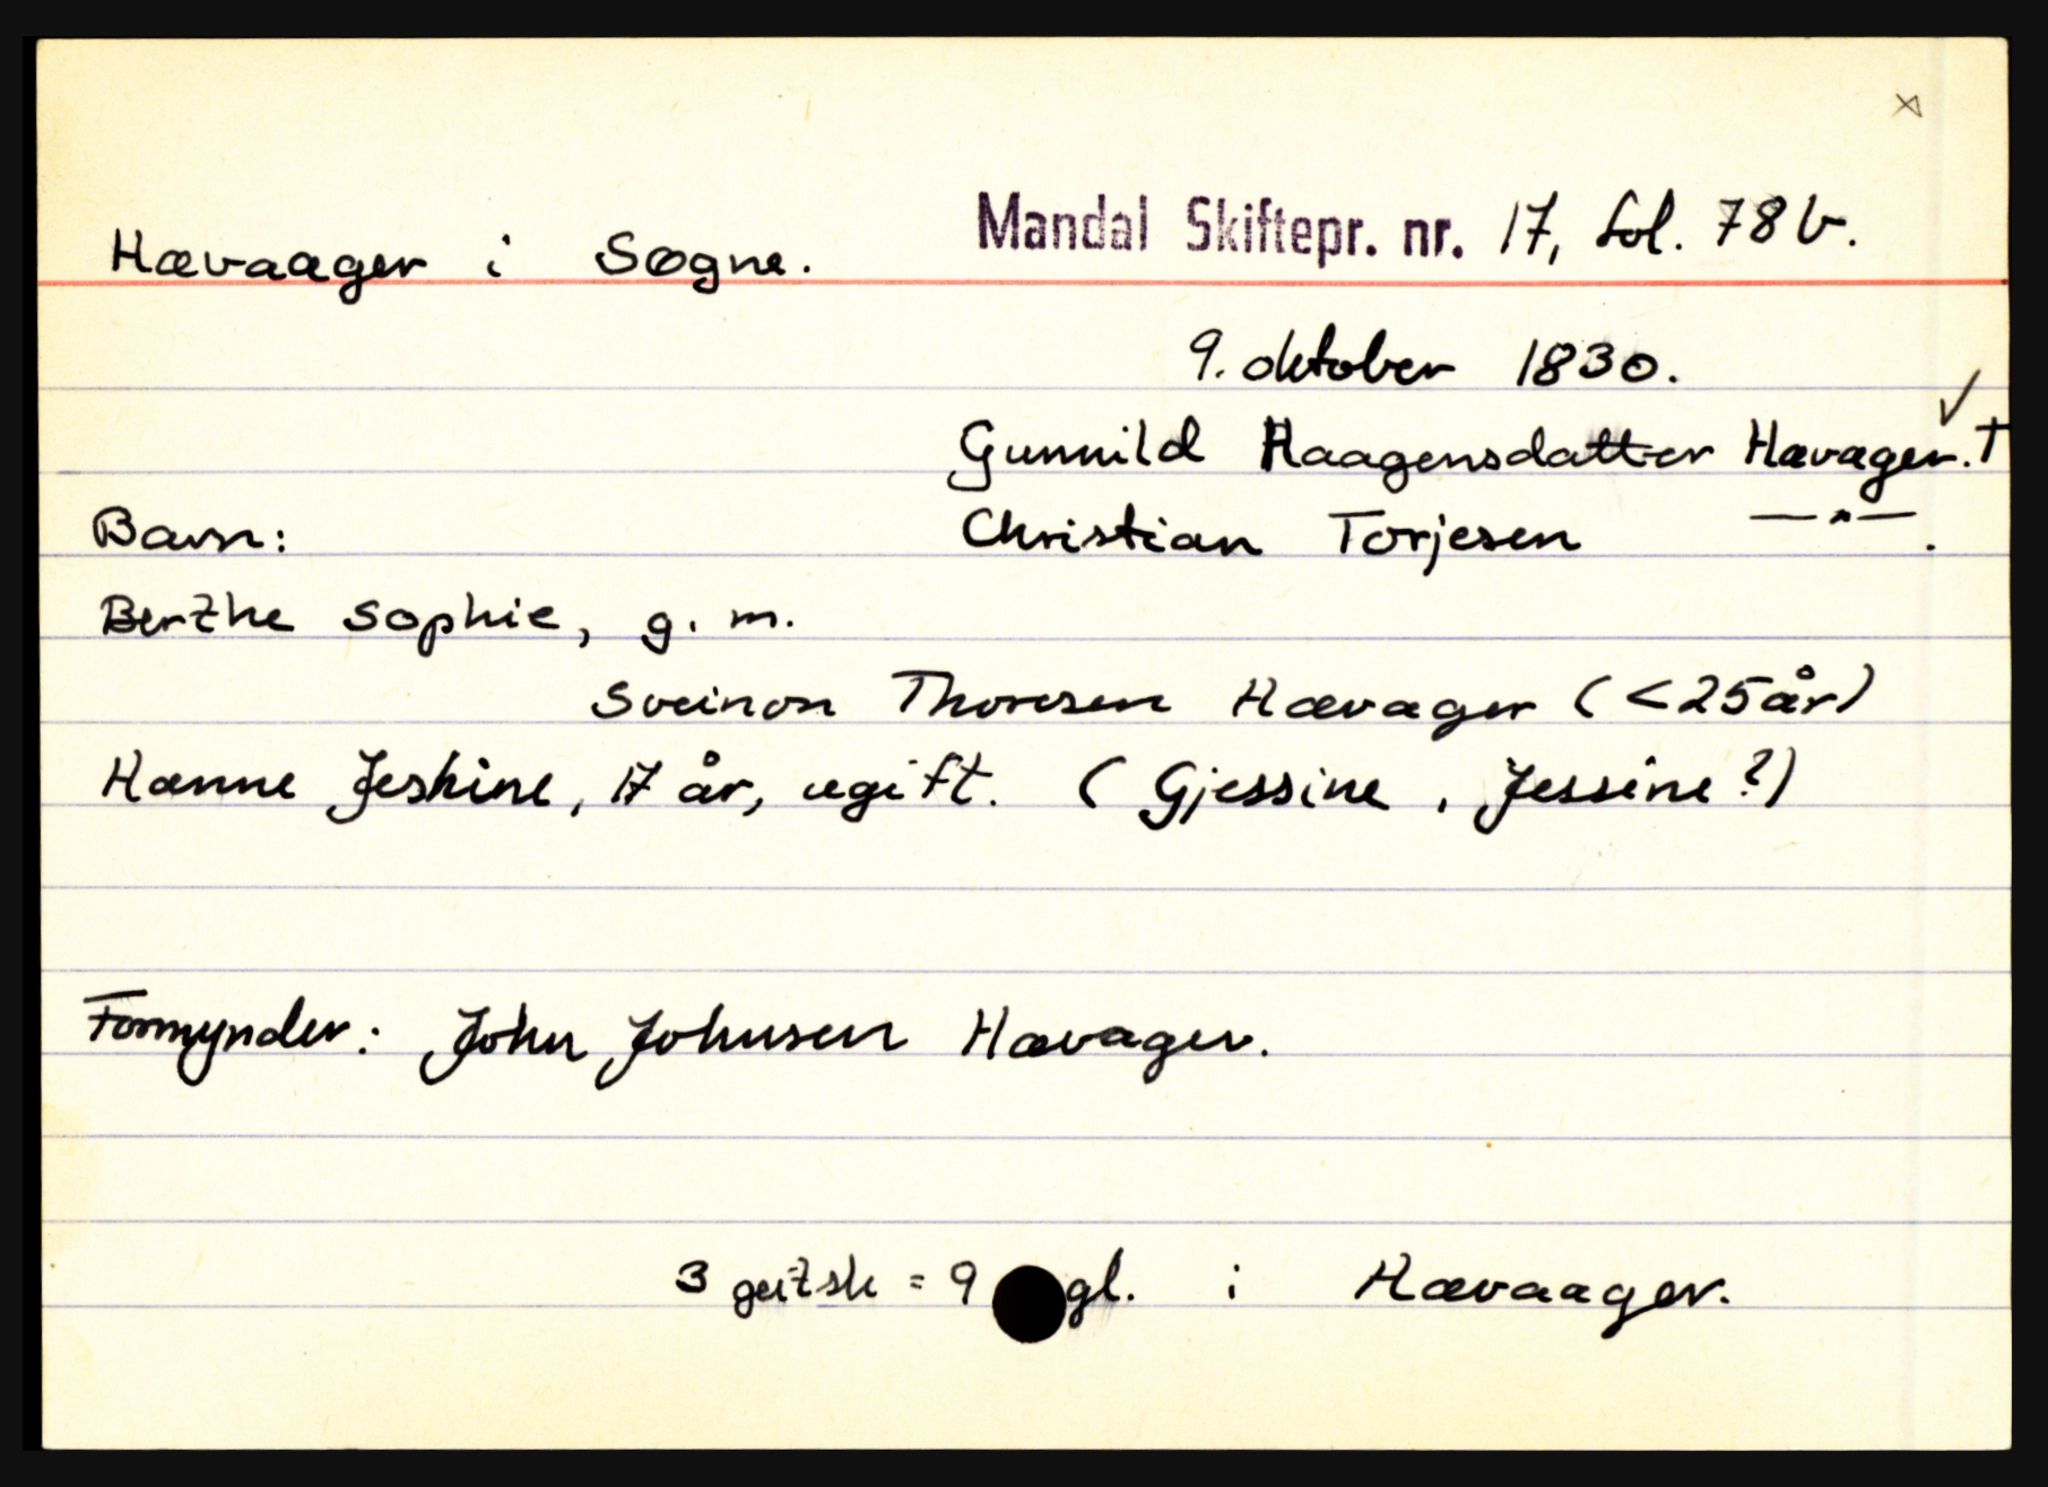 Hævaager i Søgne. Mandal Skiftepr. nr. 17, fol. 78 b.
9. oktober 1830.
Gunnild Haagensdatter Hævager. †
Barn: Christian Torjesen —"—.
Berthe Sophie, g. m.
Sveinon Thoresen Hævager (<25 år)
Hanne Jeskine, 17 år, ugift. (Gjessine, Jessine?)
Formynder: John Johnsen Hævager.
3 geitsk = 9 gl. i Hævaager.